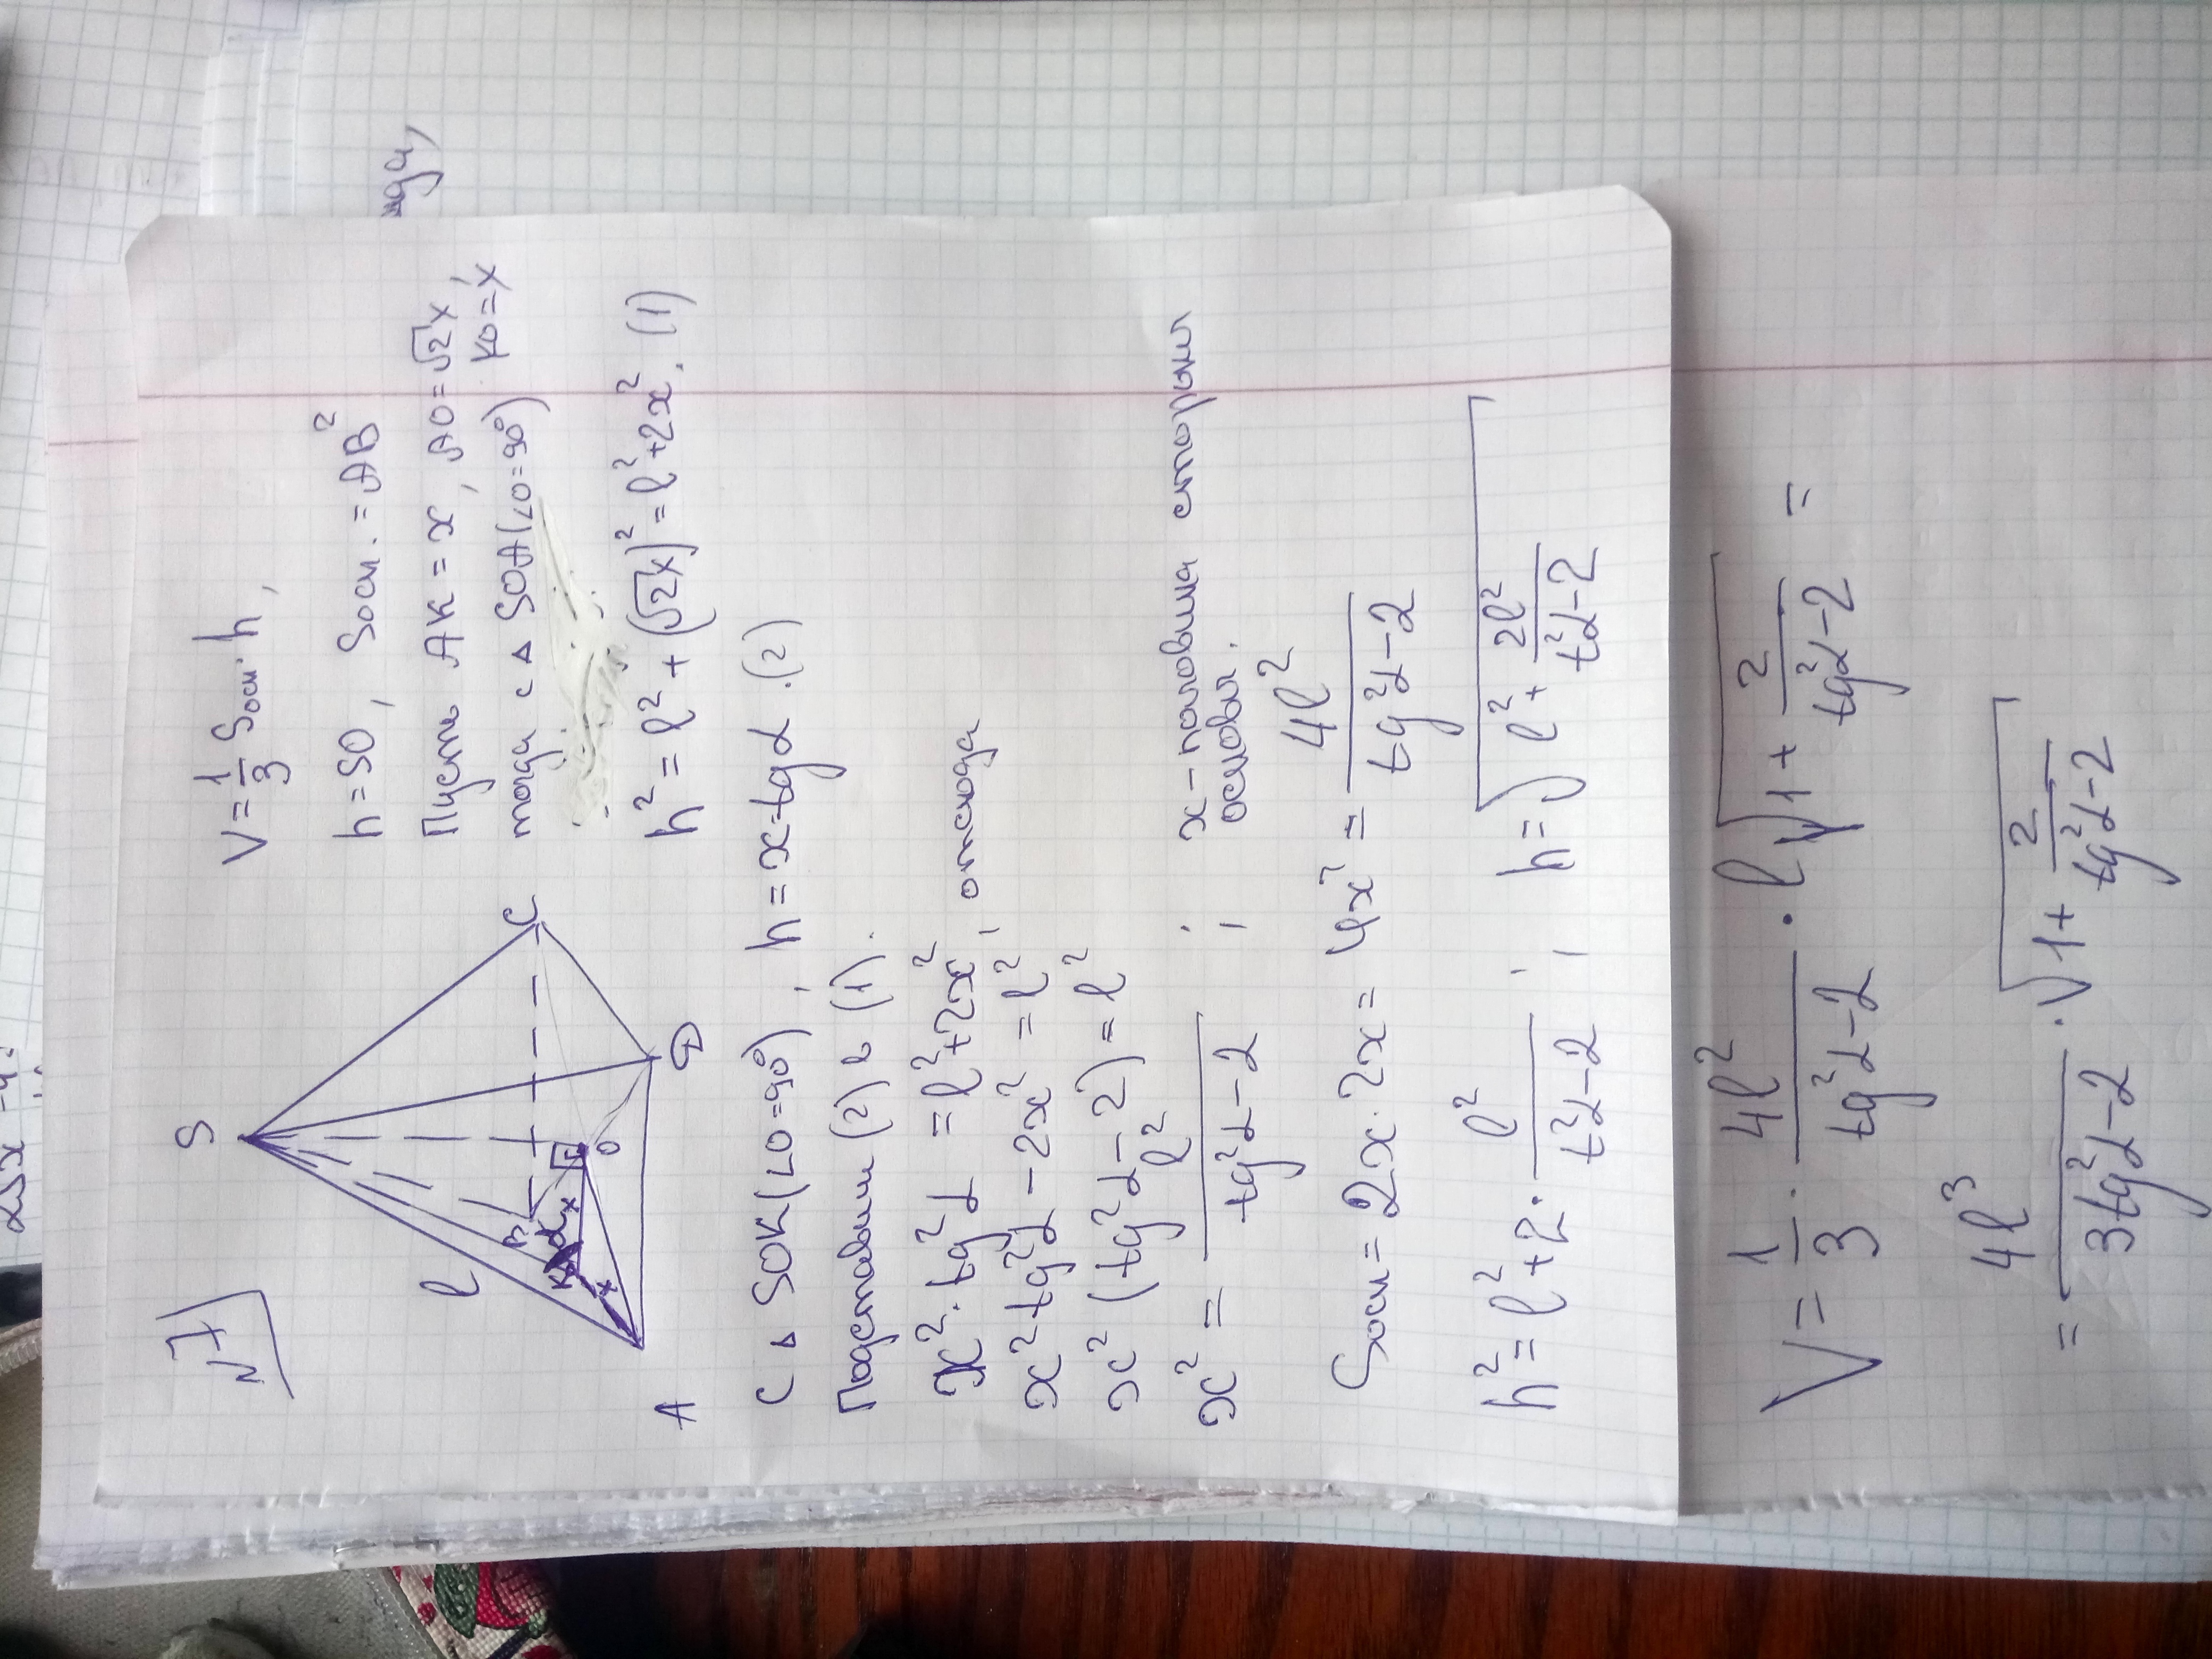 N7
S
l
B
C
K
α
x
x
O
A
D
V = 1/3 Sосн. · h,
h = SO, Sосн. = AB²
Пусть AK = x, AO = √2x,
KO = x
тогда с △ SOA (∠O = 90°)
h² = l² + (√2x)² = l² + 2x². (1)
С △ SOK (∠O = 90°); h = x · tgα. (2)
Подставим (2) в (1).
x² · tg²α = l² + 2x², отсюда
x² tg²α − 2x² = l²
x² (tg²α − 2) = l²
x² = l²/(tg²α − 2) ; x – половина стороны
основи.
Sосн = 2x · 2x = 4x² = 4l²/(tg²α − 2)
h² = l² + 2 · l²/(t²α − 2) ; h = √(l² + 2l²/(t²α − 2))
V = 1/3 · 4l²/(tg²α − 2) · l√(1 + 2/(tg²α − 2)) =
= 4l³/(3tg²α − 2) · √(1 + 2/(tg²α − 2))